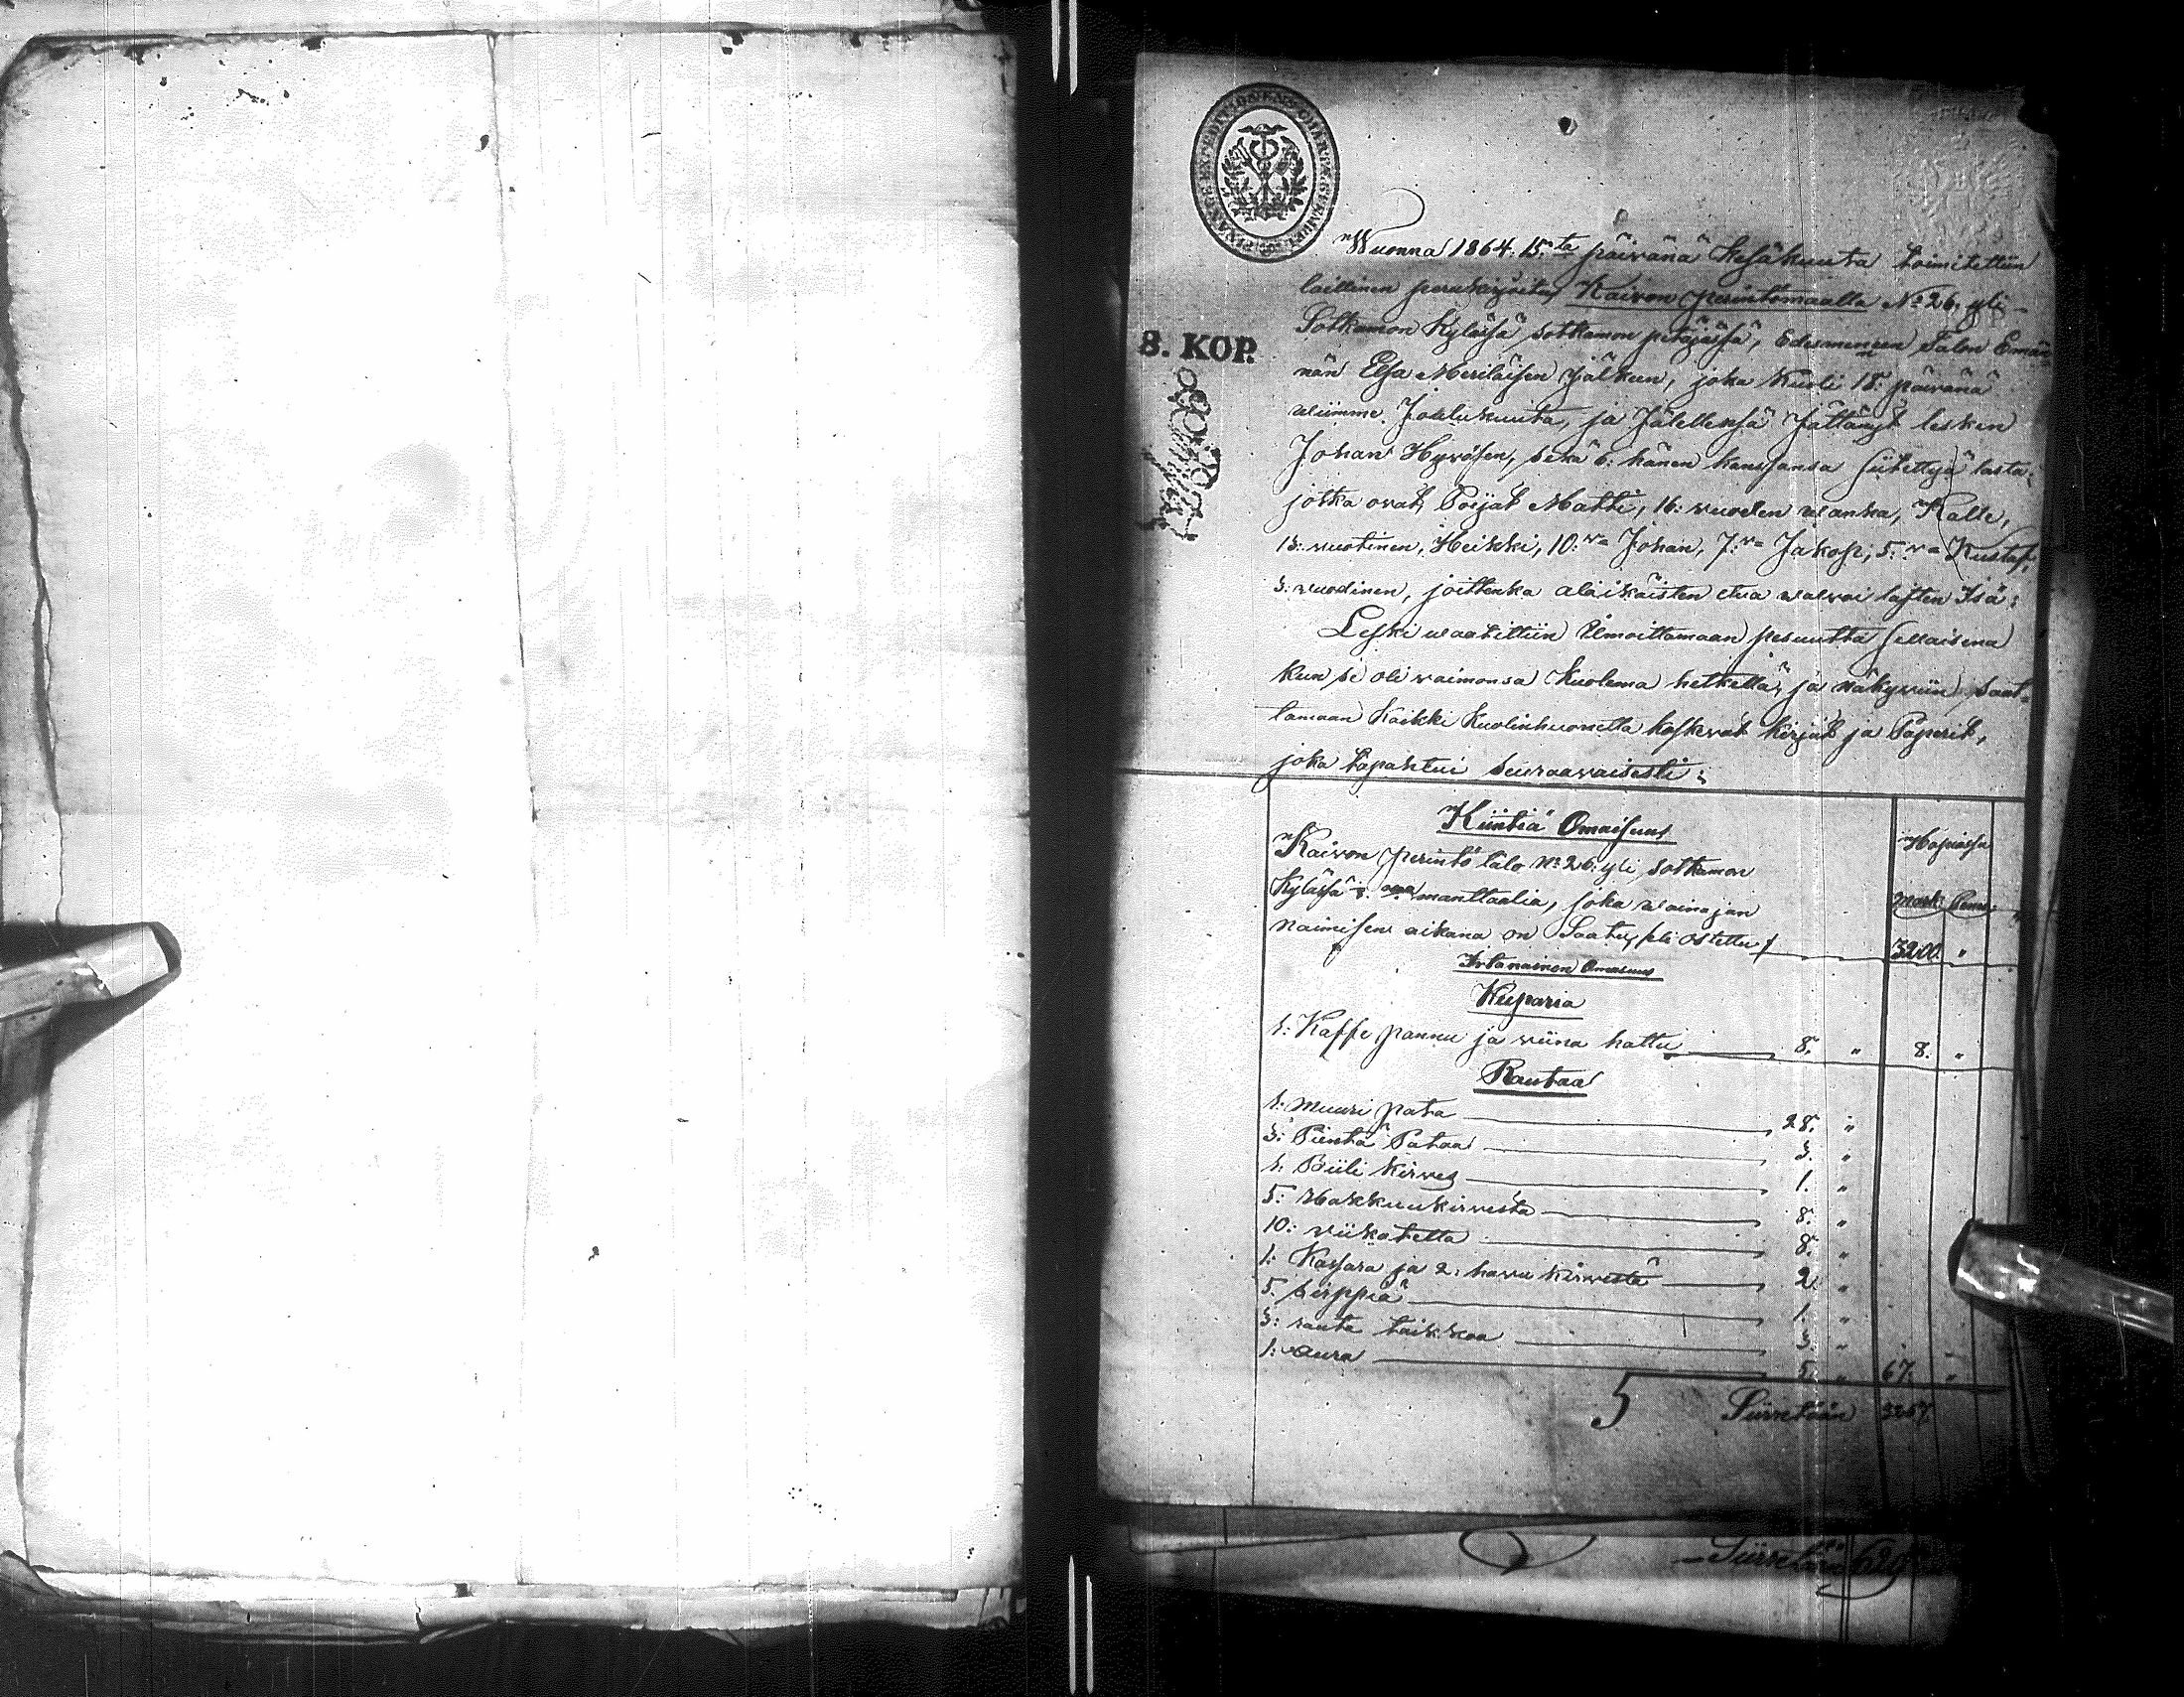 FINANCE EXPEDITIONENS CHARTÆ
Wuonna 1864. 15:ta päivänä Kesäkuuta toimitettiin
laillinen perukirjoitus Kaivon perintömaalla No 26. yli
Sotkamon Kylässä Sotkamon pitäjässä, Edesmennen Talon Emän
nän Elsa Meriläisen Jälkeen, joka Kuoli 18: päivänä
8. KOP.
wiimme Joulukuuta, ja Jälellensä Jättänyt lesken
Johan Hyvösen, sekä 6: hänen kanssansa siitettyä lasta:
jotka ovat, Pojat Matti, 16: wuoden wanha, Kalle,
13: wuotinen, Heikki, 10: wa Johan, 7: wa Jakop, 5: wa Kustaf,
3: wuodinen, joittenka alaikäisten etua walwoi lasten Isä:
Leski waadittiin Ilmoittamaan pesuutta sellaisena
kun se oli vaimonsa Kuolema hetkellä, ja näkyviin saat-
tamaan Kaikki Kuolinhuonetta koskevat kirjat ja Paperit,
joka tapahtui seuraavaisesti:
Kiintiä Omaisuus
Hopiassa
Kaivon perintö talo No 26: yli Sotkamon
Kylässä manttaalia, joka wainajan
Mark: Penni
naimisen aikana on Saatu, eli ostettu 3200. "
Irtanainen Omaisuus
Kuparia
1: Kaffe pannu ja viina hattu 8. " 8. "
Rautaa
1: Muuri pata 28. "
3: Pientä Pataa 3. "
1: Piili Kirves 1. "
5: Hakkuukirvestä 8. "
10: viikatetta 8. "
1: Kassara ja 2: havu kirvestä 2. "
5: Sirppiä 1. "
3: rauta taikkoa 3. "
1: Aura 5. " 67. "
5 Siirretään 3257
Siirretään